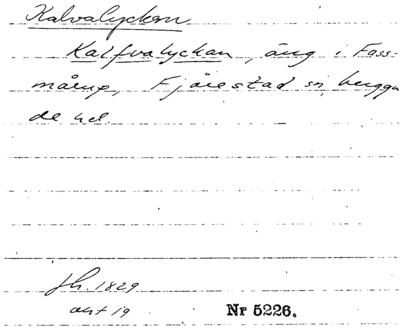 Kalvalyckan
Kalfvalyckan, äng i Fass-
mårup, Fjärestad sn, Luggu
de hd.
fh. 1829
akt 19 Nr 5226.